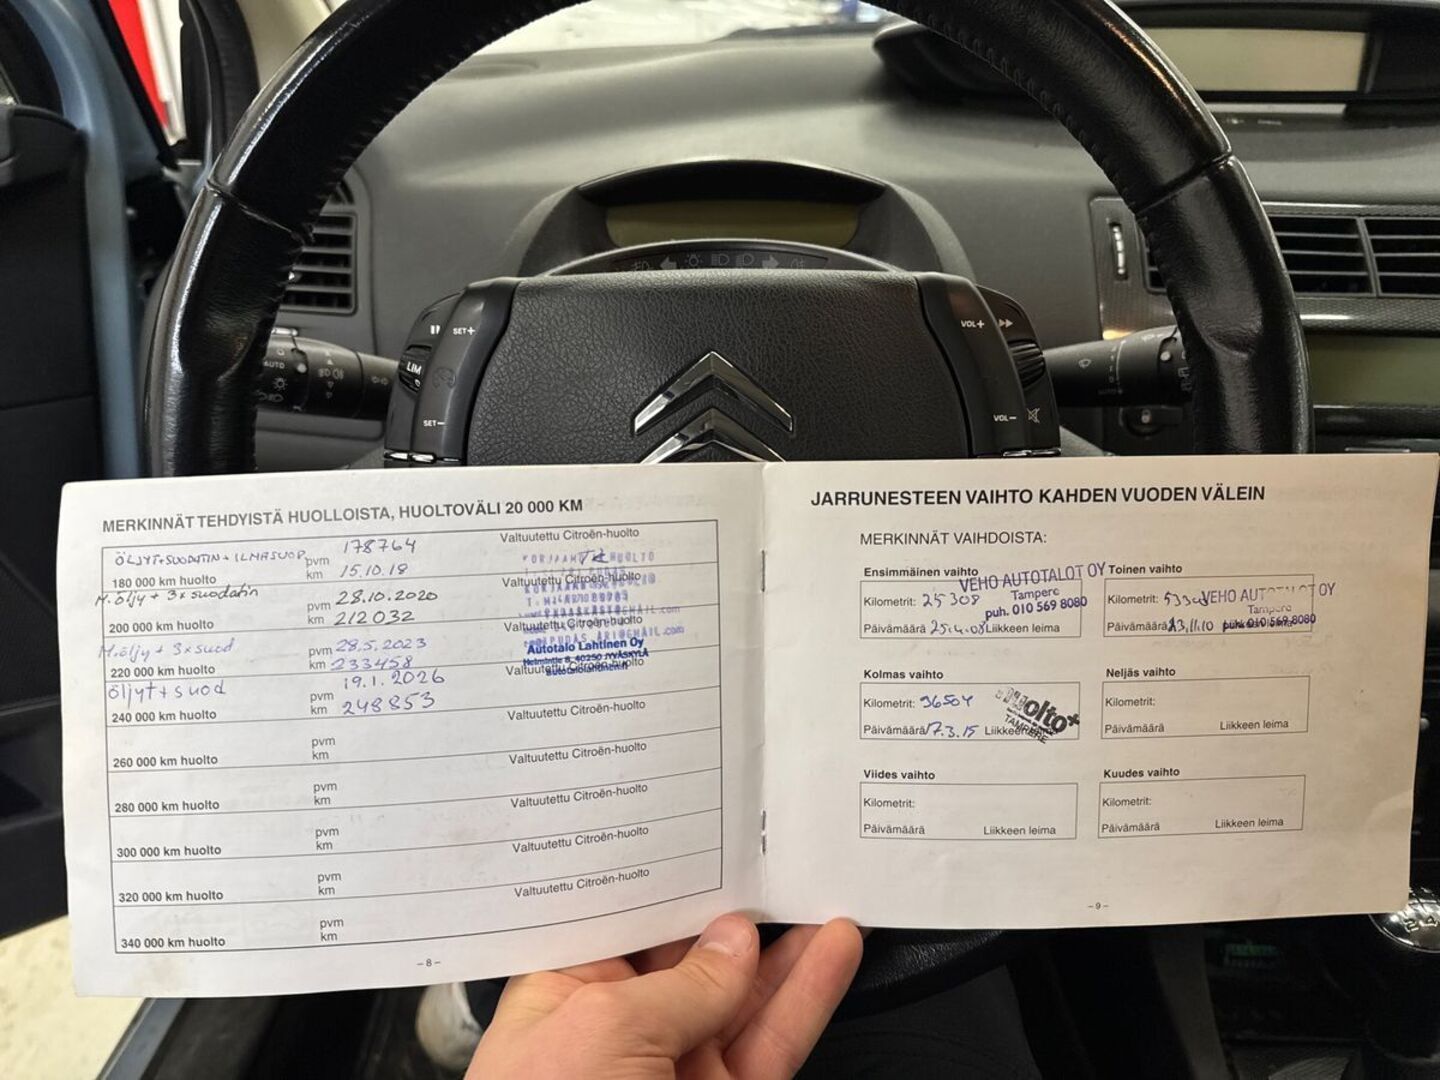 SET+
LIM
SET–
VOL+
VOL–
AUTO
MERKINNÄT TEHDYISTÄ HUOLLOISTA, HUOLTOVÄLI 20 000 KM
ÖLJYT+SUODATIN + ILMASUOD.
pvm 178764
Valtuutettu Citroën-huolto
180 000 km huolto
km 15.10.18
M.öljy + 3x suodatin
pvm 28.10.2020
Valtuutettu Citroën-huolto
200 000 km huolto
km 212032
M.öljy + 3x suod
pvm 28.5.2023
Valtuutettu Citroën-huolto
220 000 km huolto
km 233458
Autotalo Lahtinen Oy
Helmintie 8, 40250 JYVÄSKYLÄ
autotalolahtinen.fi
öljyt + suod
pvm 19.1.2026
Valtuutettu Citroën-huolto
240 000 km huolto
km 248853
pvm
Valtuutettu Citroën-huolto
260 000 km huolto
km
pvm
Valtuutettu Citroën-huolto
280 000 km huolto
km
pvm
Valtuutettu Citroën-huolto
300 000 km huolto
km
pvm
Valtuutettu Citroën-huolto
320 000 km huolto
km
pvm
Valtuutettu Citroën-huolto
340 000 km huolto
km
– 8 –
JARRUNESTEEN VAIHTO KAHDEN VUODEN VÄLEIN
MERKINNÄT VAIHDOISTA:
Ensimmäinen vaihto
Kilometrit: 25308
Päivämäärä 25.4.08 Liikkeen leima
VEHO AUTOTALOT OY
Tampere
puh. 010 569 8080
Toinen vaihto
Kilometrit:
Päivämäärä 23.11.10
VEHO AUTOTALOT OY
Tampere
puh. 010 569 8080
Kolmas vaihto
Kilometrit: 96504
Päivämäärä 17.3.15 Liikkeen leima
Huolto+
TAMPERE
Neljäs vaihto
Kilometrit:
Päivämäärä Liikkeen leima
Viides vaihto
Kilometrit:
Päivämäärä Liikkeen leima
Kuudes vaihto
Kilometrit:
Päivämäärä Liikkeen leima
– 9 –
2 4